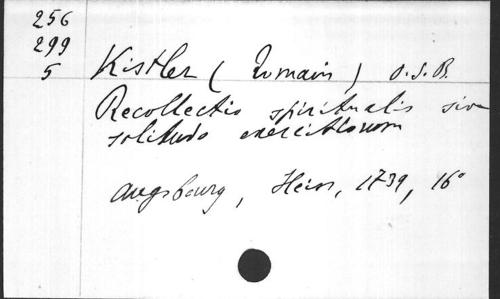 256
299
5
Kistler (Romain) O.S.B.
Recollectio spiritualis sive
solitudo exercitiorum
Augsbourg, Heiss, 1739, 16°